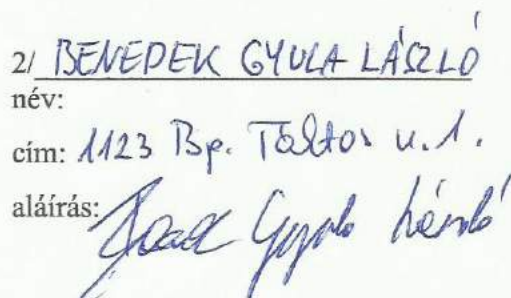 2/ BENEDEK GYULA LÁSZLÓ
név:
cím: 1123 Bp. Táltos u. 1.
aláírás: Gyula László